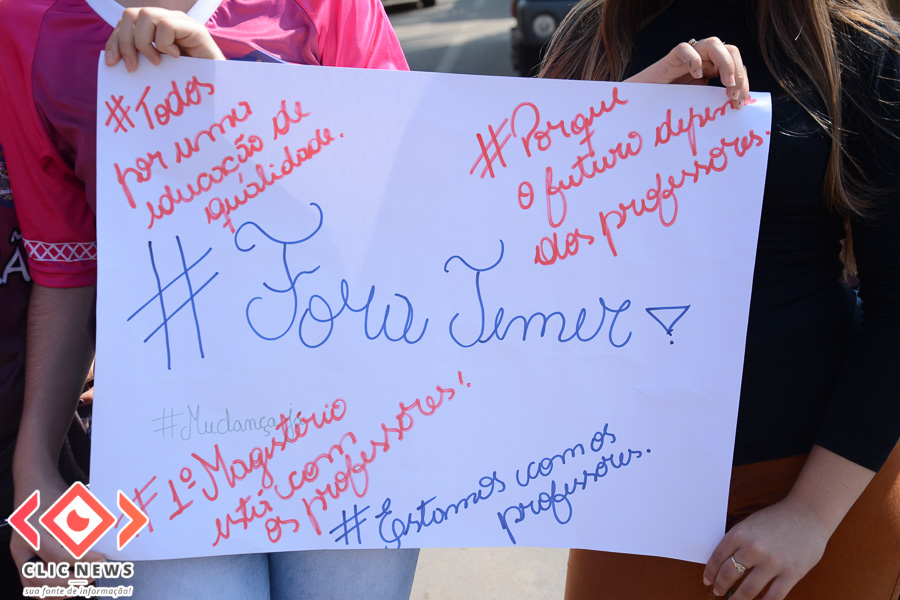 #Todos
por uma
educação de
qualidade.
#Porque
o futuro depen
dos professores.
#Fora Temer!
#Mudança já
#1º Magistério
está com
os professores!
#Estamos com os
professores.
CLIC NEWS
sua fonte de informação!